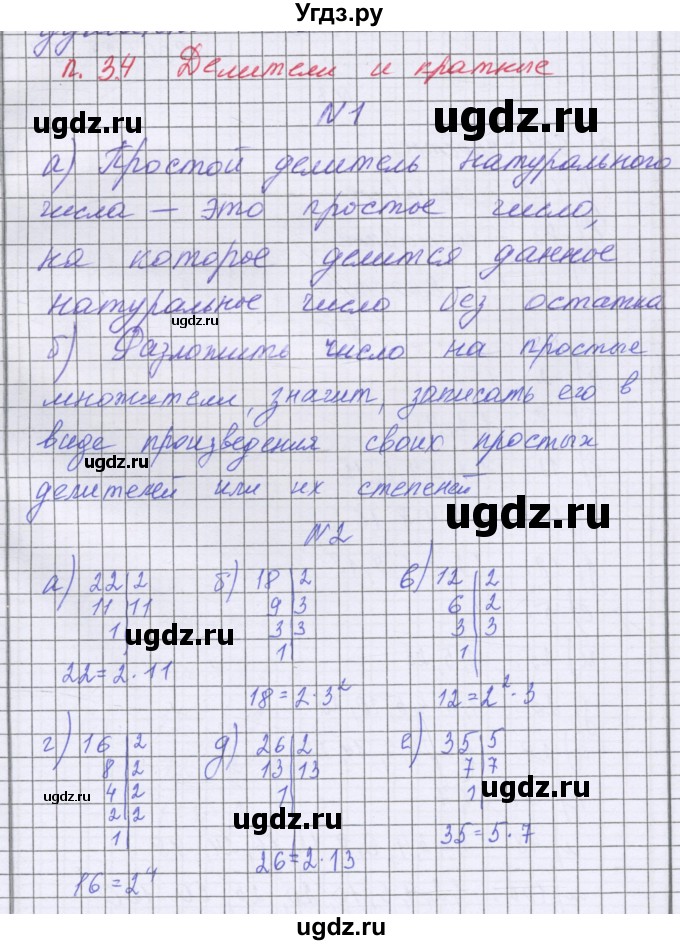 Угдз.ру
п. 3.4 Делители и кратные
ugdz.ru ugdz.ru
N1
а) Простой делитель натурального
числа — это простое число,
на которое делится данное
натуральное число без остатка
ugdz.ru
б) Разложить число на простые
множители, значит, записать его в
виде произведения своих простых
ugdz.ru
делителей или их степеней
ugdz.ru
N2
а) 22|2 б) 18|2 в) 12|2
11|11 9|3 6|2
1| 3|3 3|3
ugdz.ru ugdz.ru
1| 1|
22=2·11
18=2·3² 12=2²·3
г) 16|2 д) 26|2 е) 35|5
8|2 13|13 7|7
4|2 1| 1|
ugdz.ru ugdz.ru ugdz.ru
2|2
1| 35=5·7
26=2·13
16=2⁴
ugdz.ru